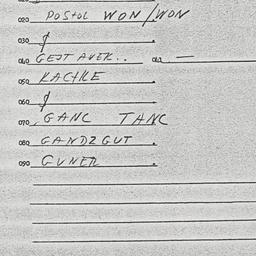 020 POSTOL WON/WON
030 $
040 GEJTAVEK.. 042 —
050 KACHLE
060 $
070 GANC TANC
080 GANDZGUT
090 GUNER